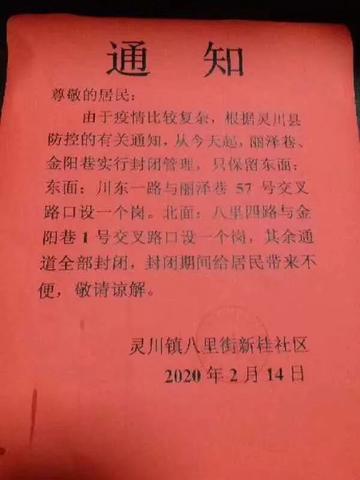 通 知
尊敬的居民:
由于疫情比较复杂，根据灵川县
防控的有关通知，从今天起，丽泽巷、
金阳巷实行封闭管理，只保留东面:
东面:川东一路与丽泽巷 57 号交叉
路口设一个岗。北面:八里四路与金
阳巷 1 号交叉路口设一个岗，其余通
道全部封闭，封闭期间给居民带来不
便，敬请谅解。
灵川镇八里街新桂社区
2020 年 2 月 14 日